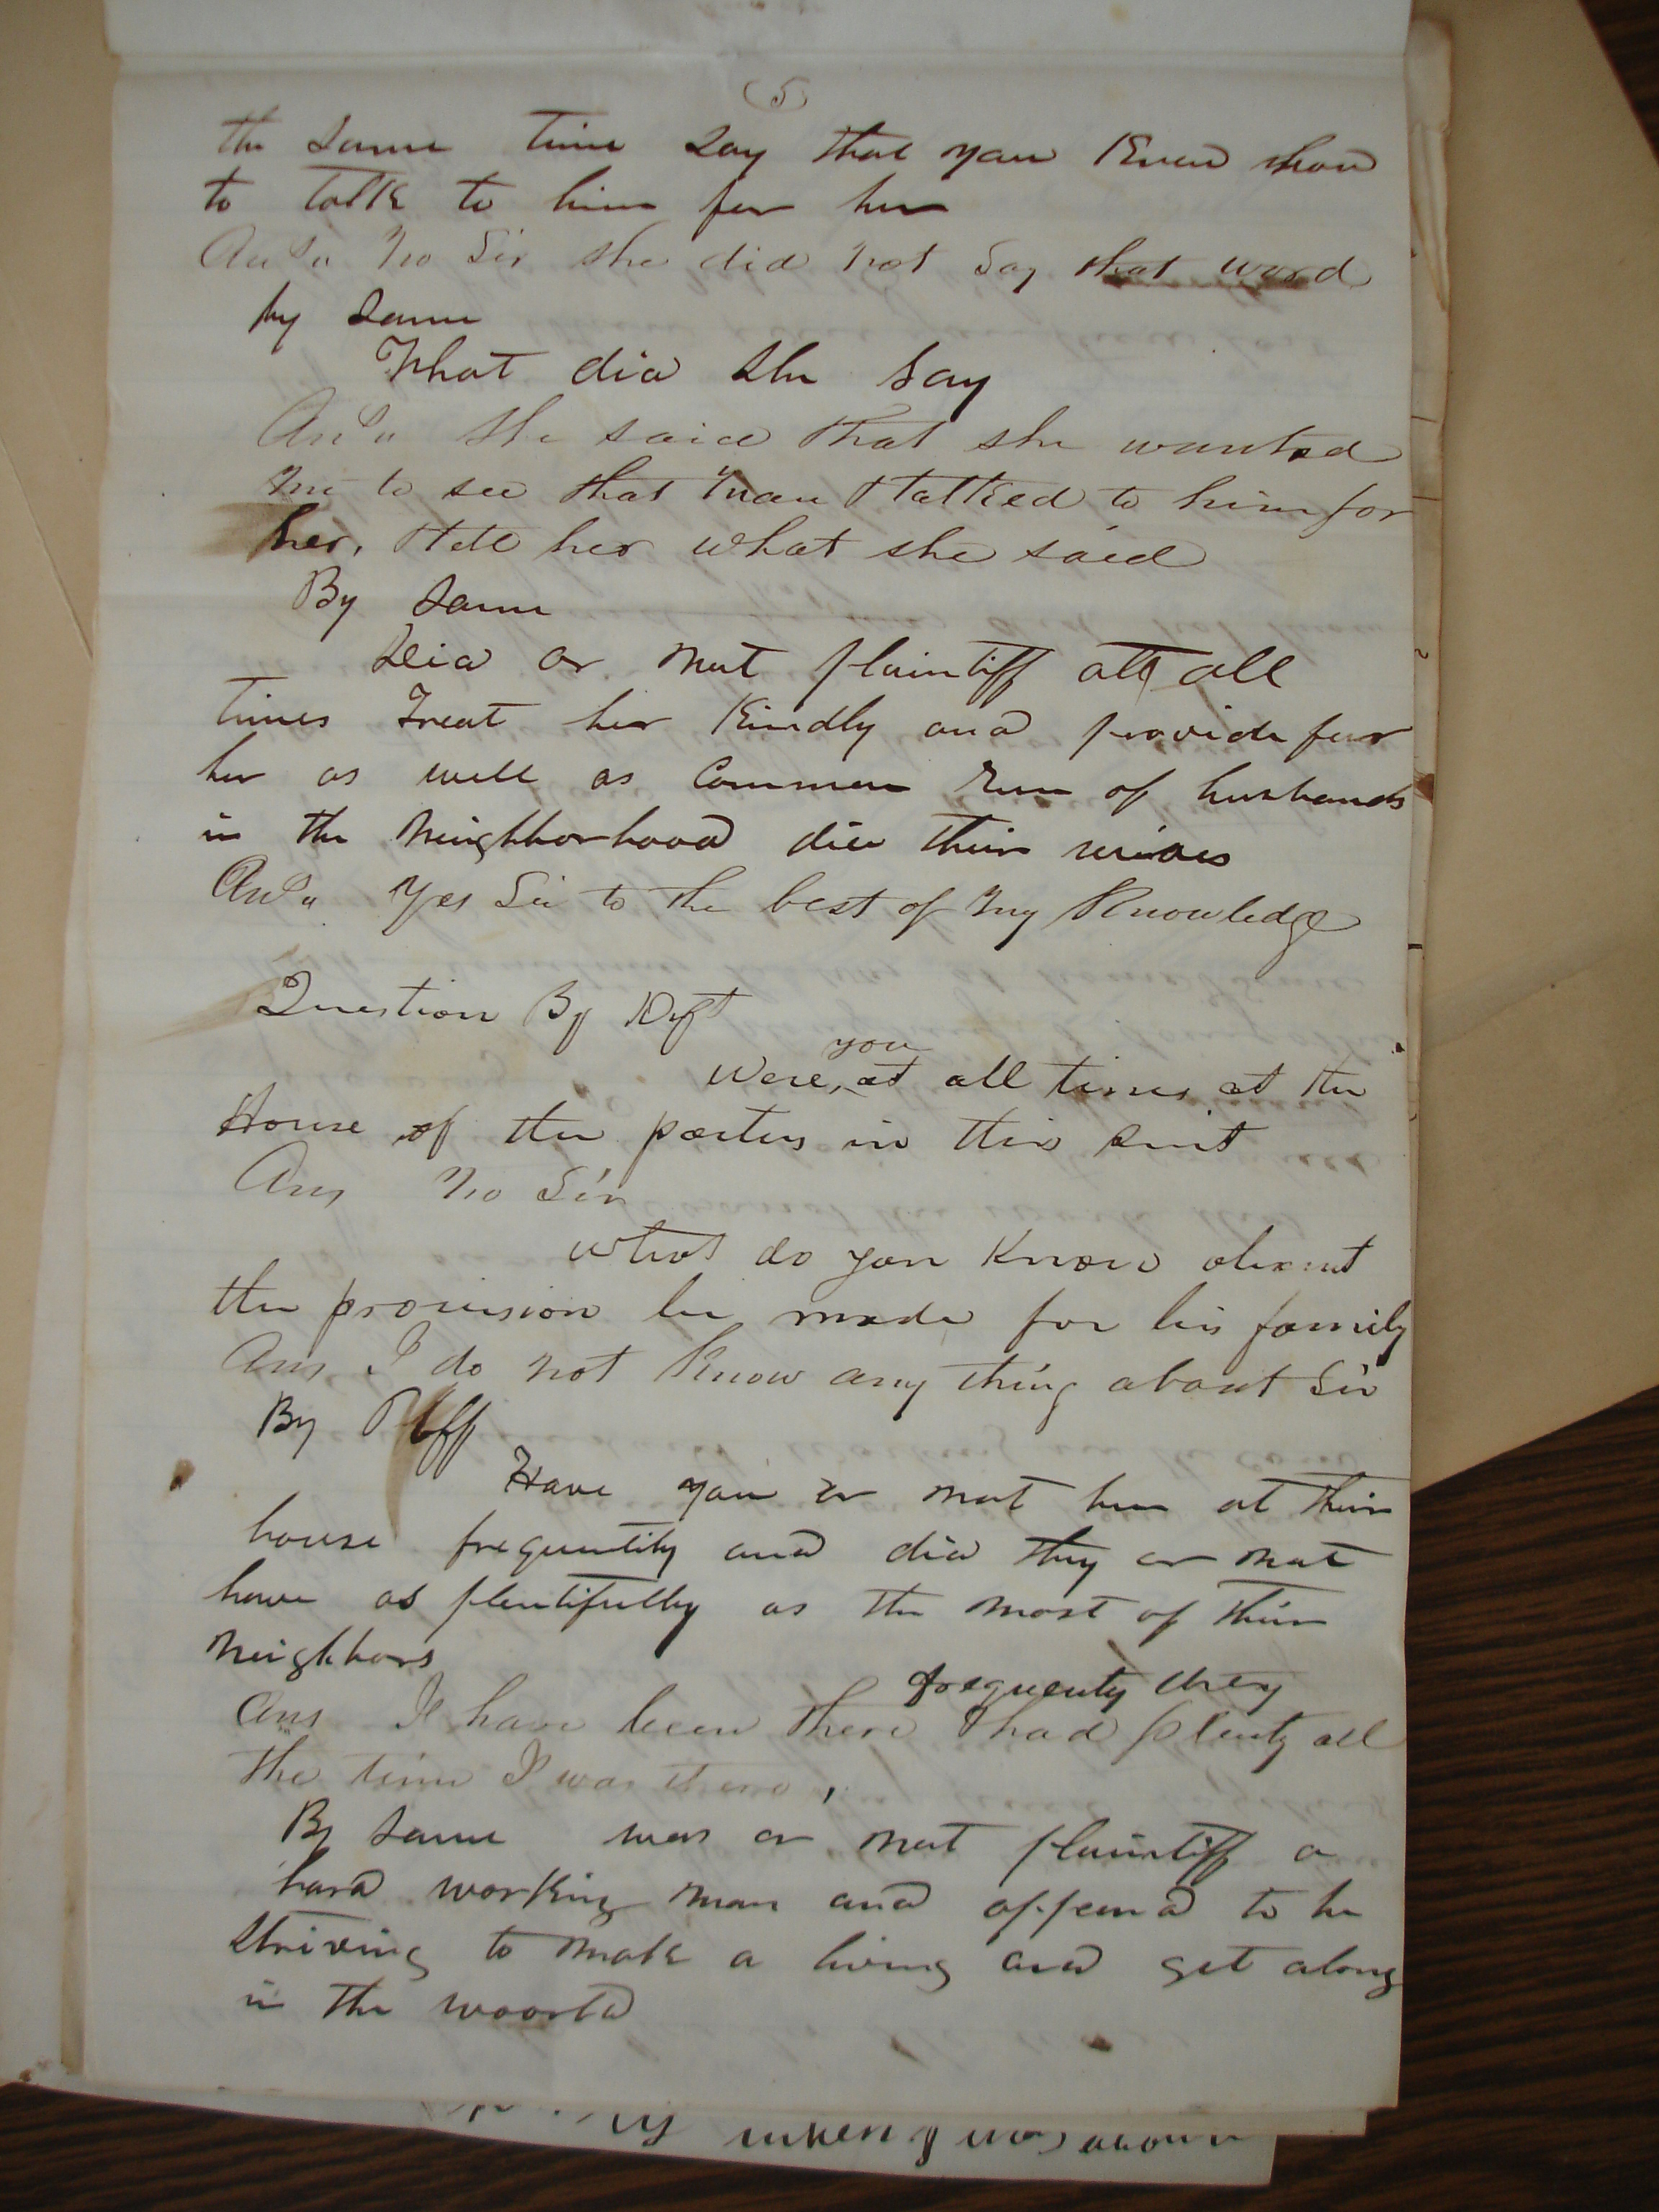 (5)
the same time say that you Knew how
to talk to him for her
Ans No Sir she did not say that word
by same
What did she say
Ans She said that she wanted
me to see that man & talked to him for
her, & tell her what she said
By same
Did or not plaintiff att all
times treat her Kindly and provide for
her as well as common run of husbands
in the neighborhood did their wives
Ans Yes Sir to the best of my Knowledge
Question By Deft
you
Were, at all times at the
House of the parties in this suit
Ans No Sir
What do you Know about
the provision he made for his family
Ans I do not Know any thing about Sir
By Plff
Have you or not been at their
house frequently and did they or not
have as plentifully as the most of their
neighbors
frequenty they
Ans I have been there & had plenty all
the time I was there,
By same was or not plaintiff a
hard working man and appeard to be
striving to make a living and get along
in the woorld